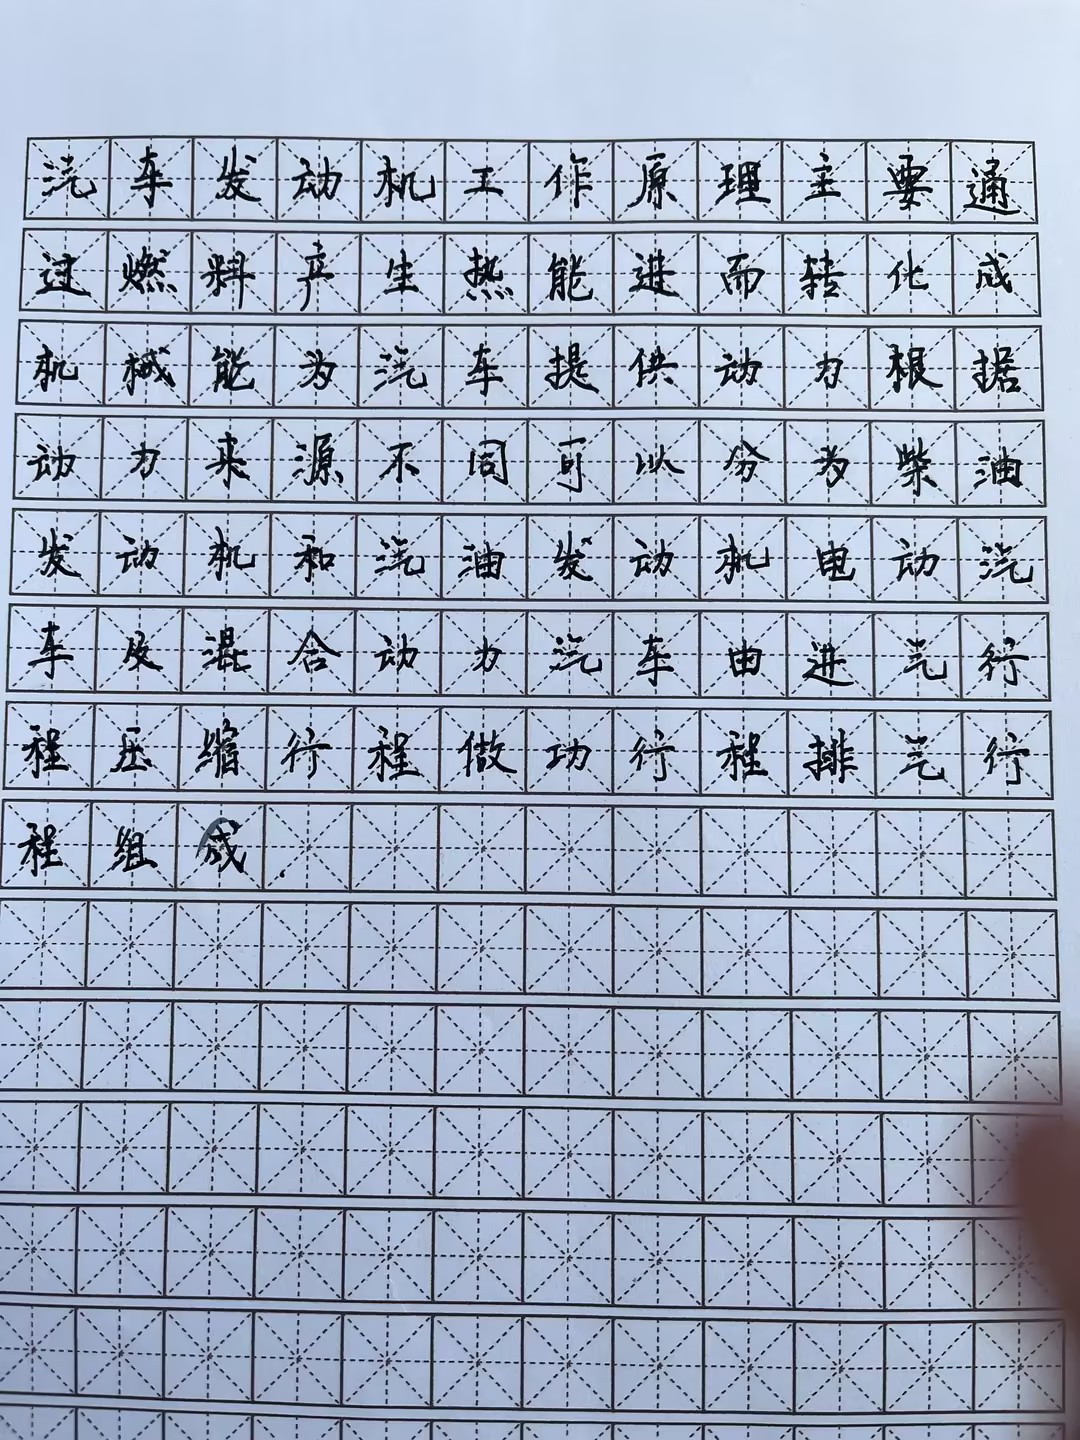 汽车发动机工作原理主要通
过燃料产生热能进而转化成
机械能为汽车提供动力根据
动力来源不同可以分为柴油
发动机和汽油发动机电动汽
车及混合动力汽车由进气行
程压缩行程做功行程排气行
程组成.